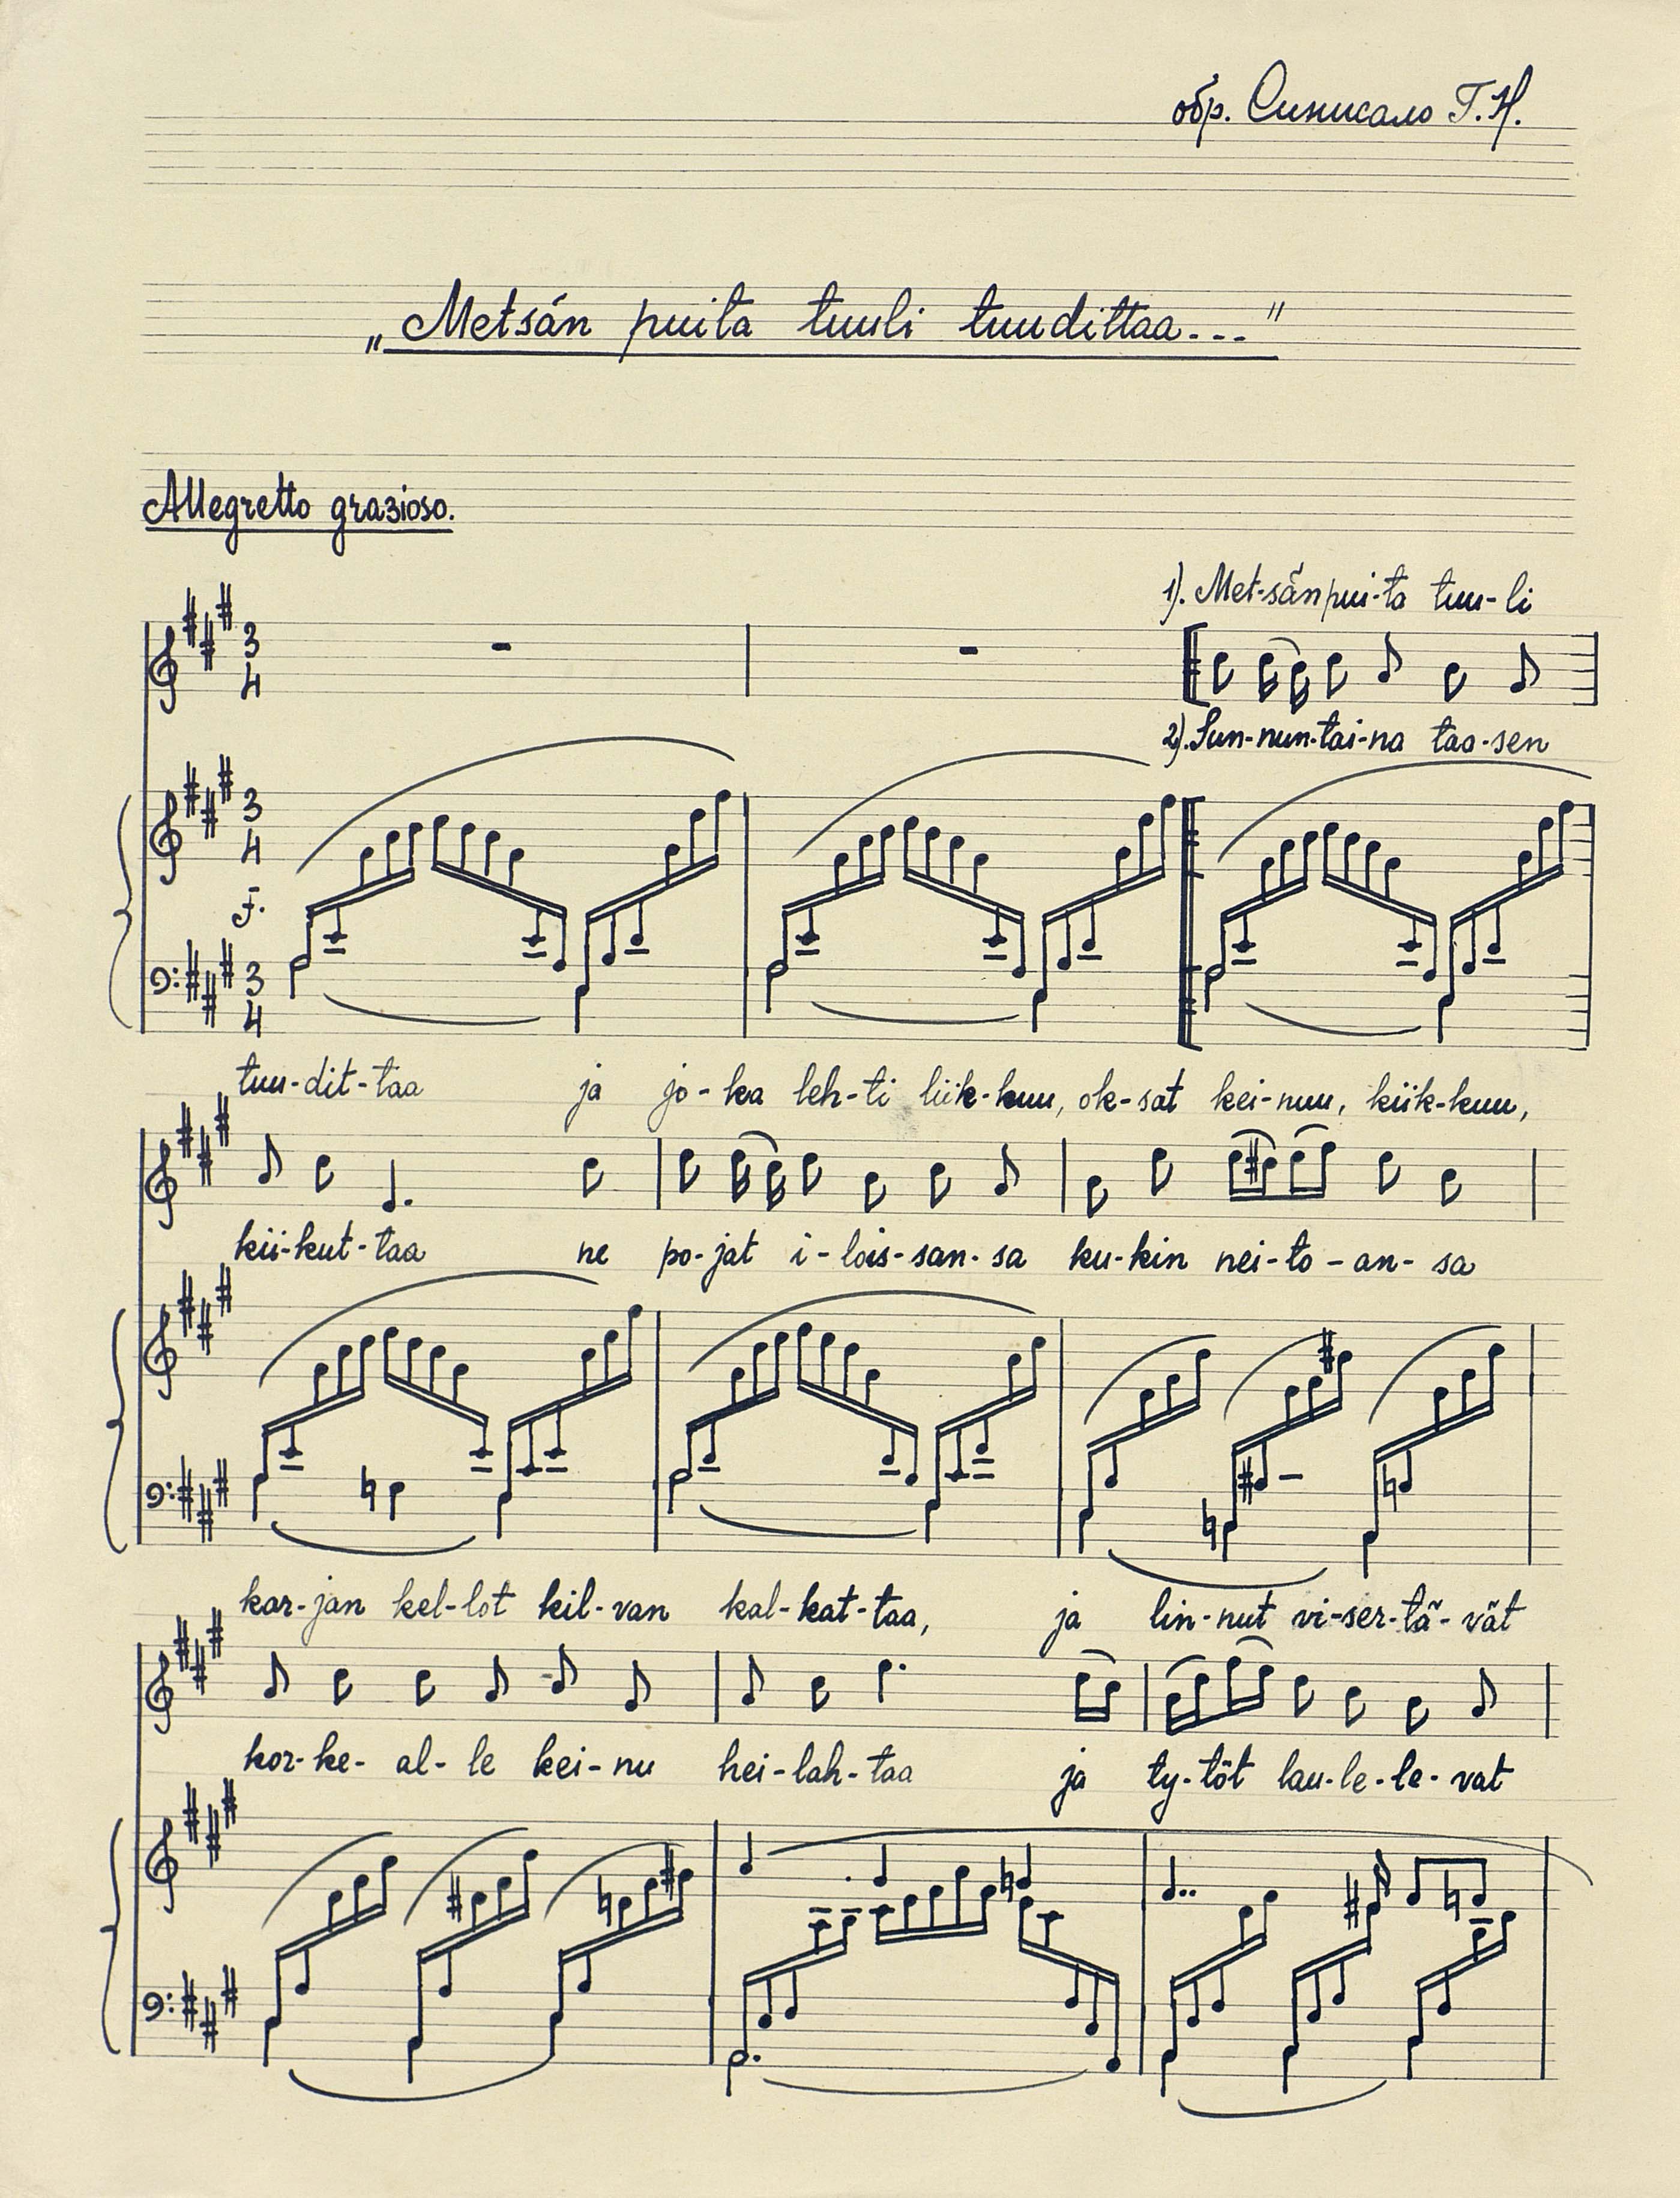 обр. Синисало Г.Н.
„Metsán puita tuuli tuudittaa---"
Allegretto grazioso.
1). Met-sän pui-ta tuu-li
3
4
2). Sun-nun-tai-na taa-sen
3
4
f.
3
4
tuu-dit-taa ja jo-ka leh-ti liik-kuu, ok-sat kei-nuu, kiik-kuu,
kii-kut-taa ne po-jat i-lois-san-sa ku-kin nei-to-an-sa
kar-jan kel-lot kil-van kal-kat-taa, ja lin-nut vi-ser-tä-vät
kor-ke-al-le kei-nu hei-lah-taa ja ty-töt lau-le-le-vat